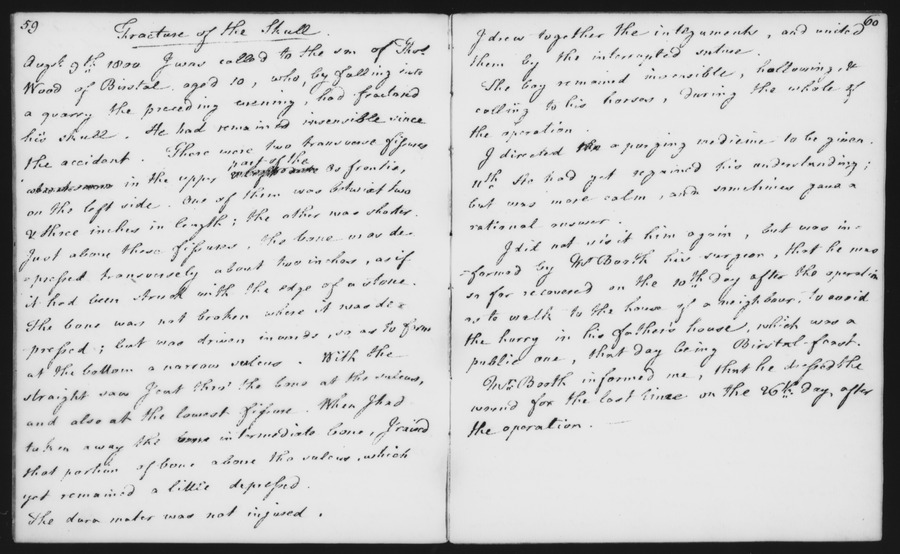 59
Fracture of the Skull.
Augst. 9th. 1800 I was called to the son of Thos.
Wood of Birstal aged 10, who, by falling into
a quarry the preceding evening, had fractured
his skull. He had remained insensible since
the accident. There were two transverse fissures
part of the
in the upper Os frontis,
on the left side. One of them was betwixt two
& three inches in length; the other was shorter.
Just above these fissures, the bone was de-
-pressed transversely about two inches, as if
it had been struck with the edge of a stone.
The bone was not broken where it was de-
-pressed; but was driven inwards, so as to form
at the bottom a narrow sulcus. With the
straight saw I cut thro' the bone at the sulcus,
and also at the lowest fissure. When I had
taken away the bone intermediate bone, I raised
that portion of bone above the sulcus, which
yet remained a little depressed.
The dura mater was not injured.
60
I drew together the integuments, and united
them by the interrupted suture.
The boy remained insensible, hallowing, &
calling to his horses, during the whole of
the operation.
I directed the a purging medicine to be given.
11th. He had not regained his understanding;
but was more calm, and sometimes gave a
rational answer.
I did not visit him again, but was in-
-formed by Mr. Booth his surgeon, that he was
so far recovered on the 10th. day after the operation
as to walk to the house of a neighbour, to avoid
the hurry in his father's house, which was a
public one, that day being Birstal-feast.
Mr. Booth informed me, that he dressed the
wound for the last time on the 26th. day, after
the operation.